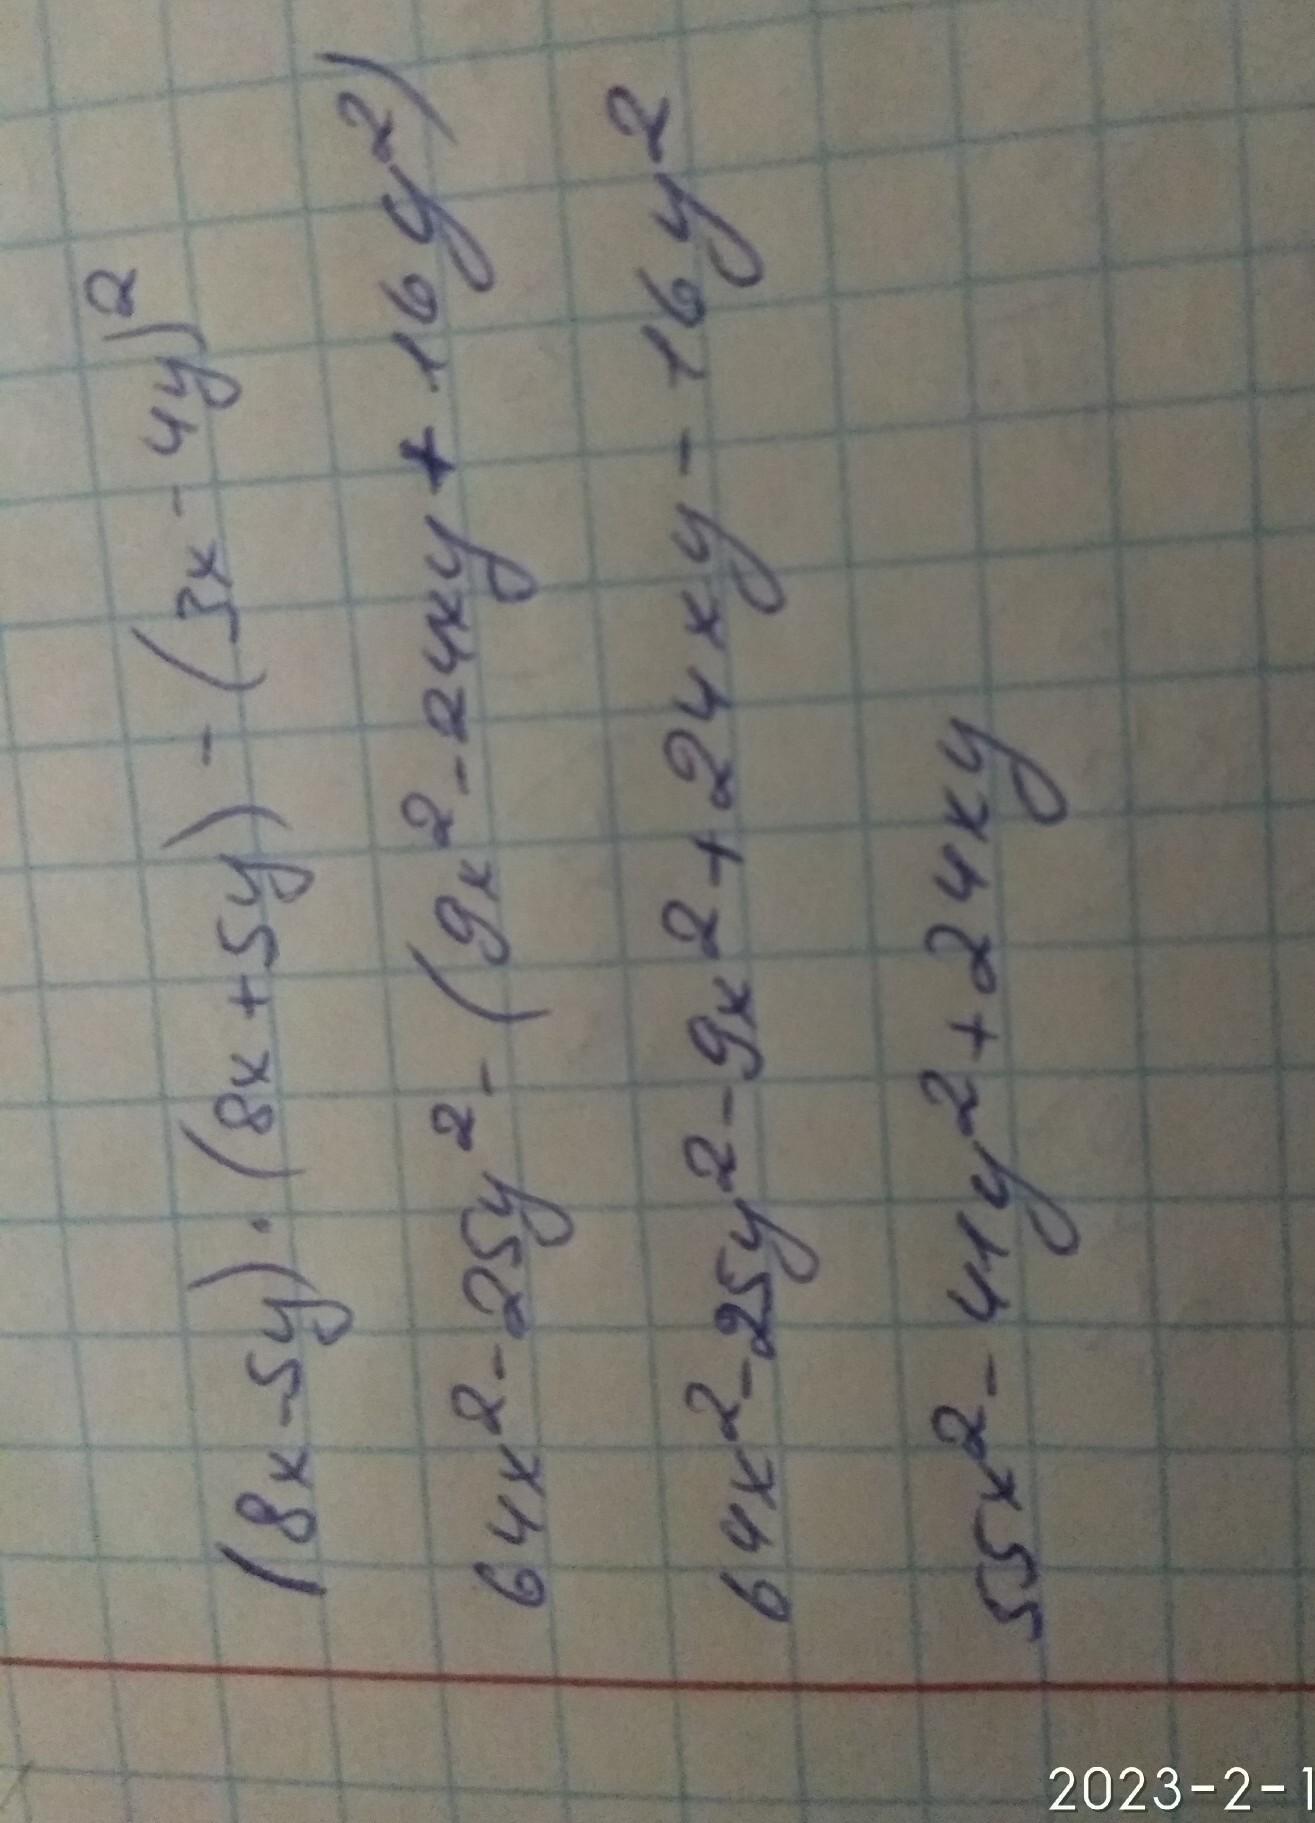 (8x-5y)·(8x+5y)-(3x-4y)²
64x²-25y²-(9x²-24xy+16y²)
64x²-25y²-9x²+24xy-16y²
55x²-41y²+24xy
2023-2-1